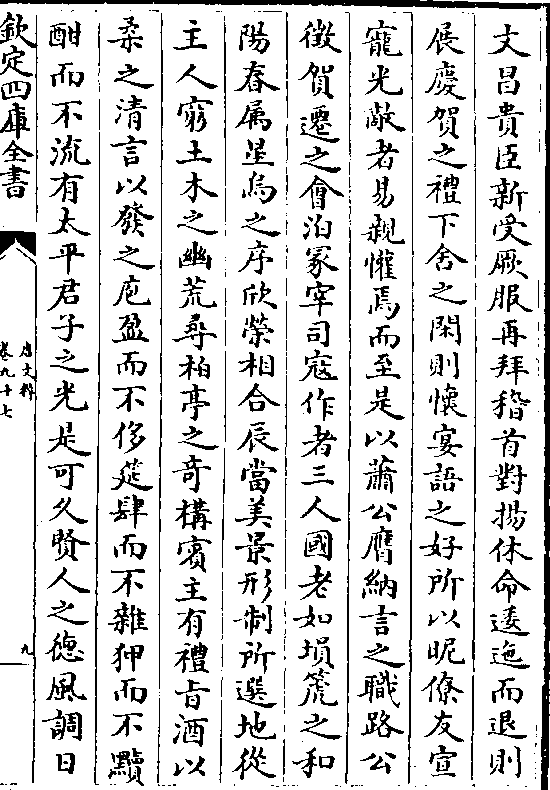 文昌貴臣新受厥服再拜稽首對揚休命逶迤而退則
展慶賀之禮下舍之閑則懷宴語之好所以昵僚友宣
寵光敵者易親懽焉而至是以蕭公膺納言之職路公
徵賀遷之會洎冢宰司寇作者三人國老如塤箎之和
陽春属星鳥之序欣榮相合辰當美景形制所選地從
主人窮土木之幽荒尋柏亭之奇構賓主有禮旨酒以
柔之清言以發之庖盈而不侈筵肆而不雜狎而不黷
酣而不流有太平君子之光是可久賢人之德風調日
欽定四庫全書
唐文粹
卷九十七
九